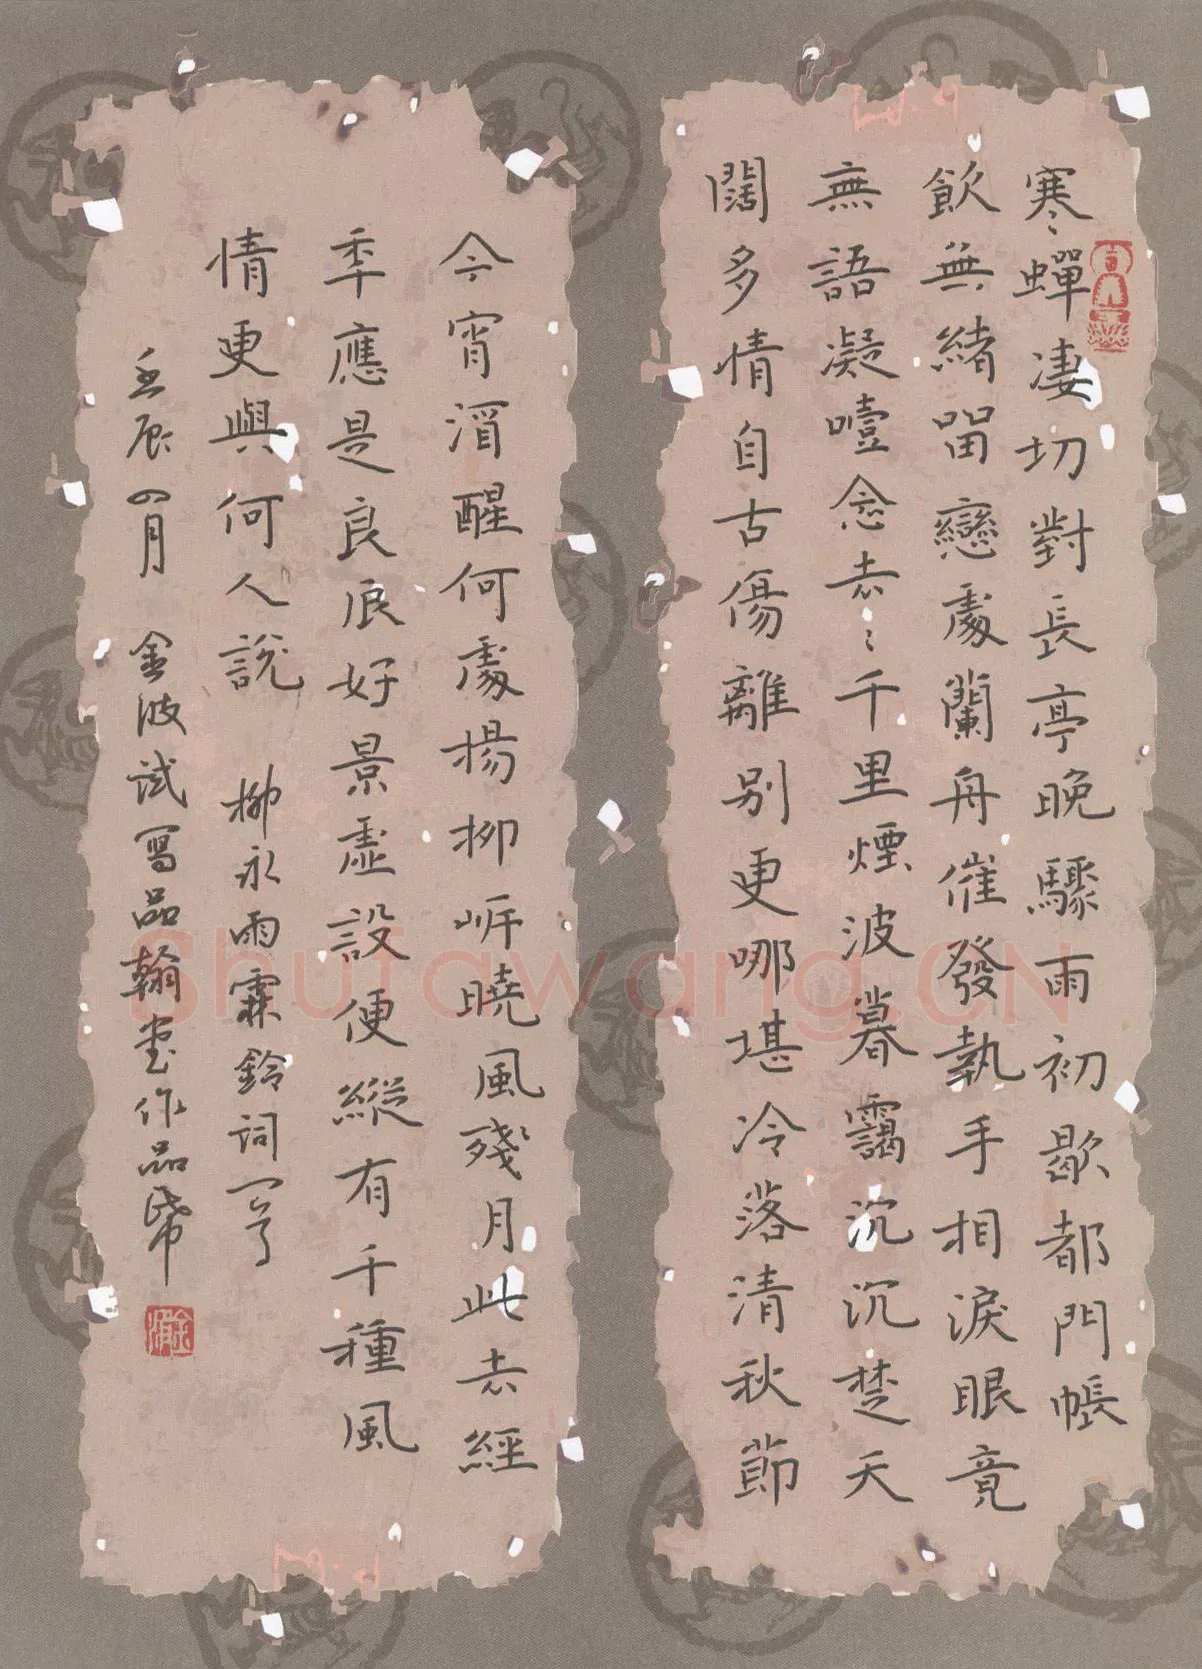 寒蟬凄切對長亭晚驟雨初歇都門帳
飲無緒留戀處蘭舟催發執手相淚眼竟
無語凝噎念去〻千里煙波暮靄沉沉楚天
闊多情自古傷離別更哪堪冷落清秋節
今宵酒醒何處楊柳岸曉風殘月此去經
年應是良辰好景虛設便縱有千種風
情更與何人說 柳永雨霖鈴詞一首
壬辰四月 金波試寫品翰堂作品紙
Shufawang.CN